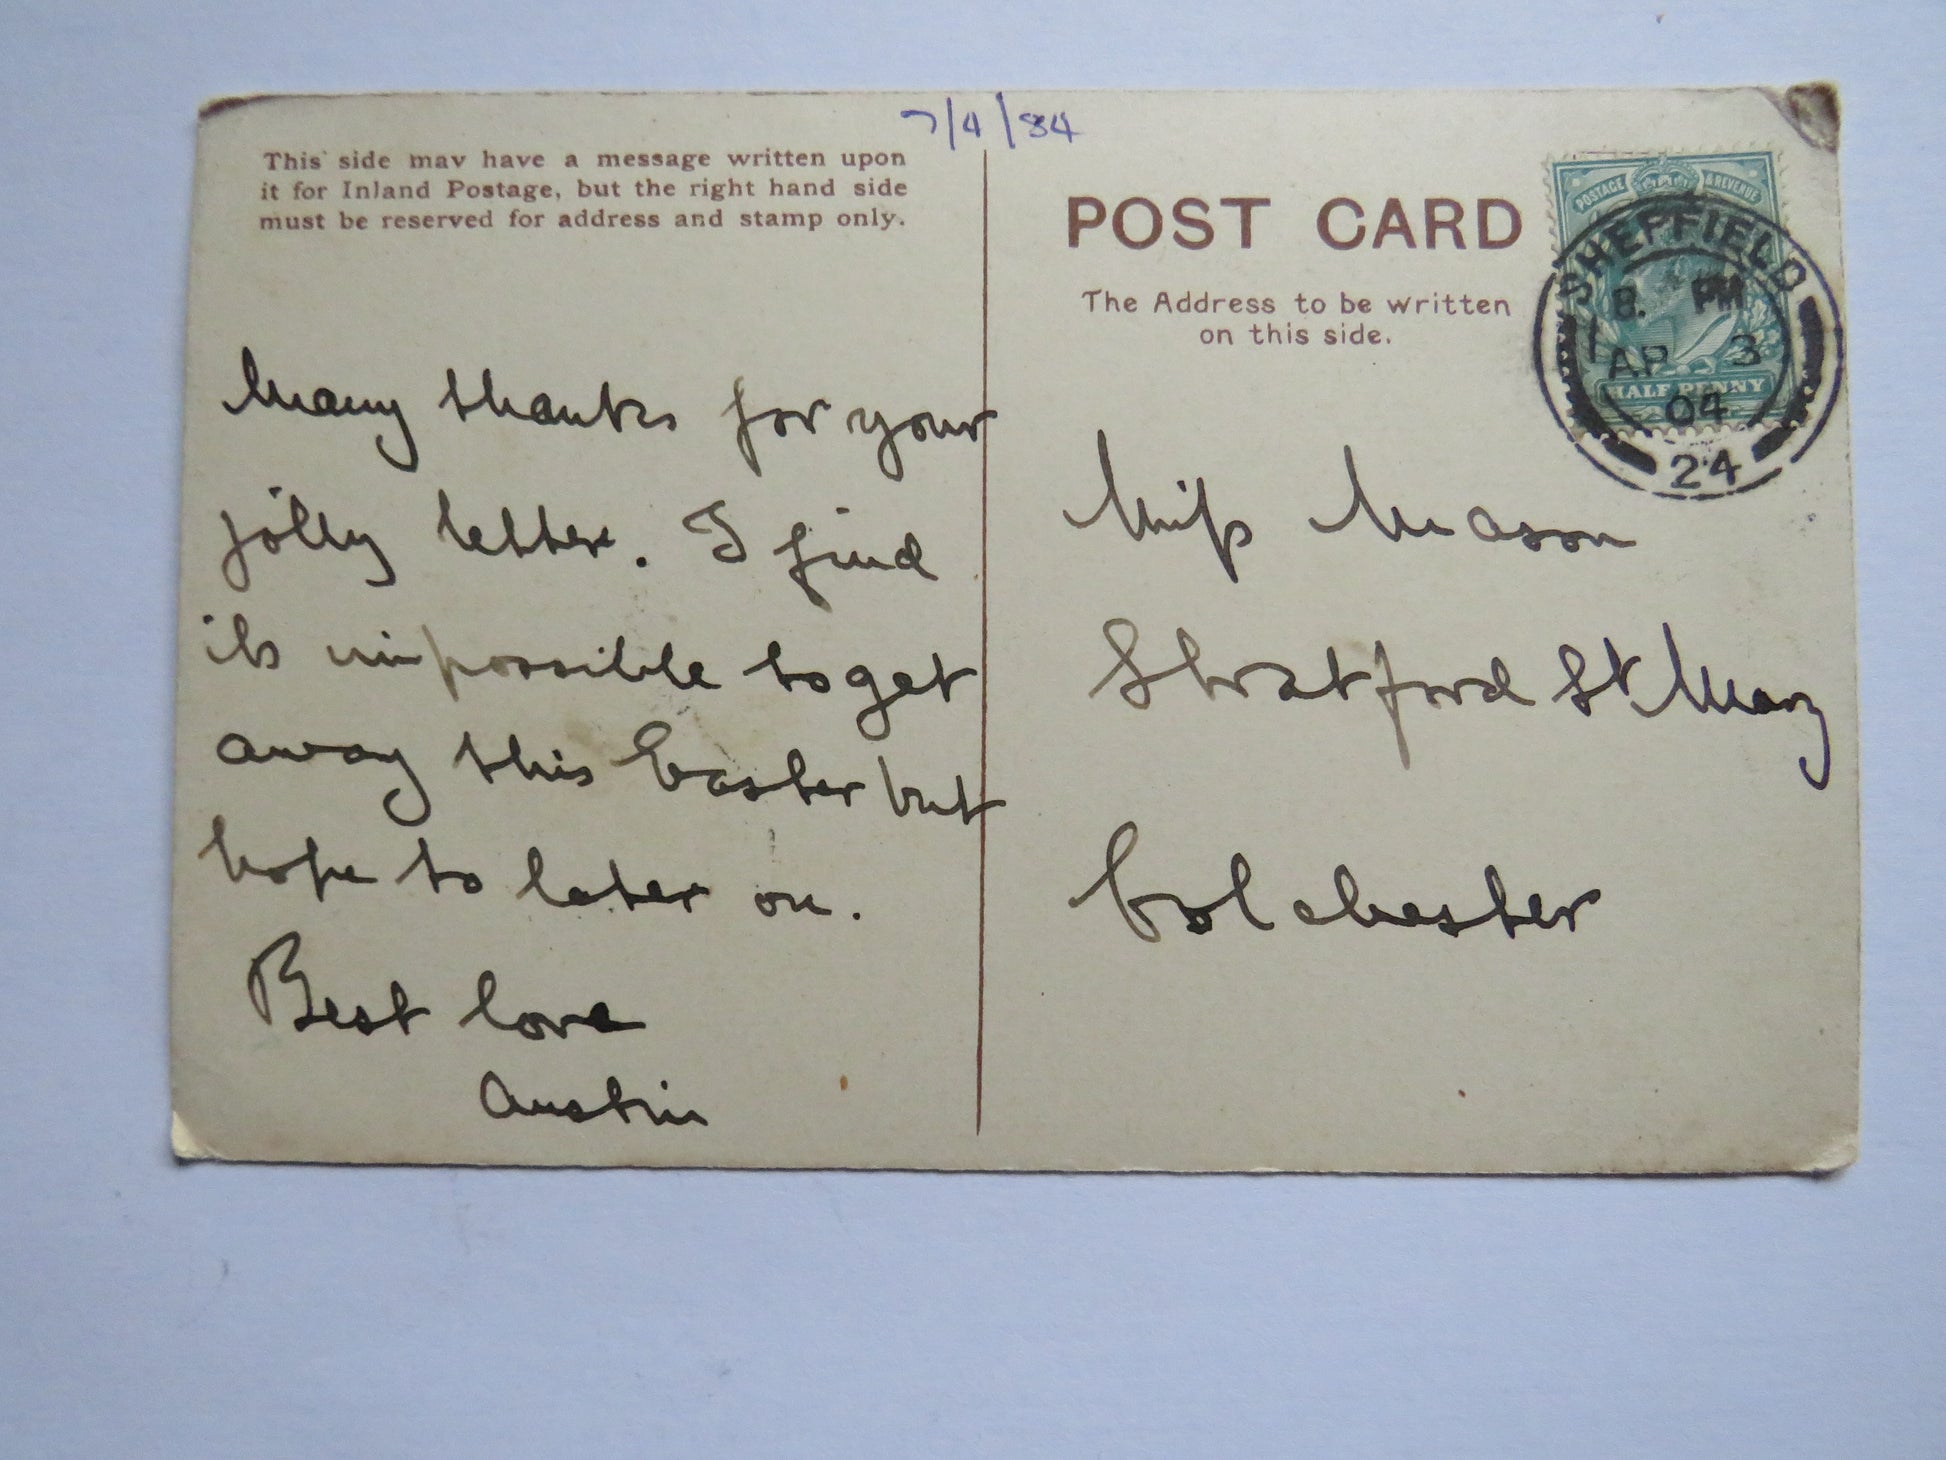 7/4/84
This side may have a message written upon
it for Inland Postage, but the right hand side
must be reserved for address and stamp only.
Many thanks for your
jolly letter. I find
its impossible to get
away this Easter but
hope to later on.
Best love
Austin
POST CARD
The Address to be written
on this side.
POSTAGE & REVENUE
HALFPENNY
SHEFFIELD
8. PM
AP 3
04
24
Miss Mason
Stratford St Mary
Colchester